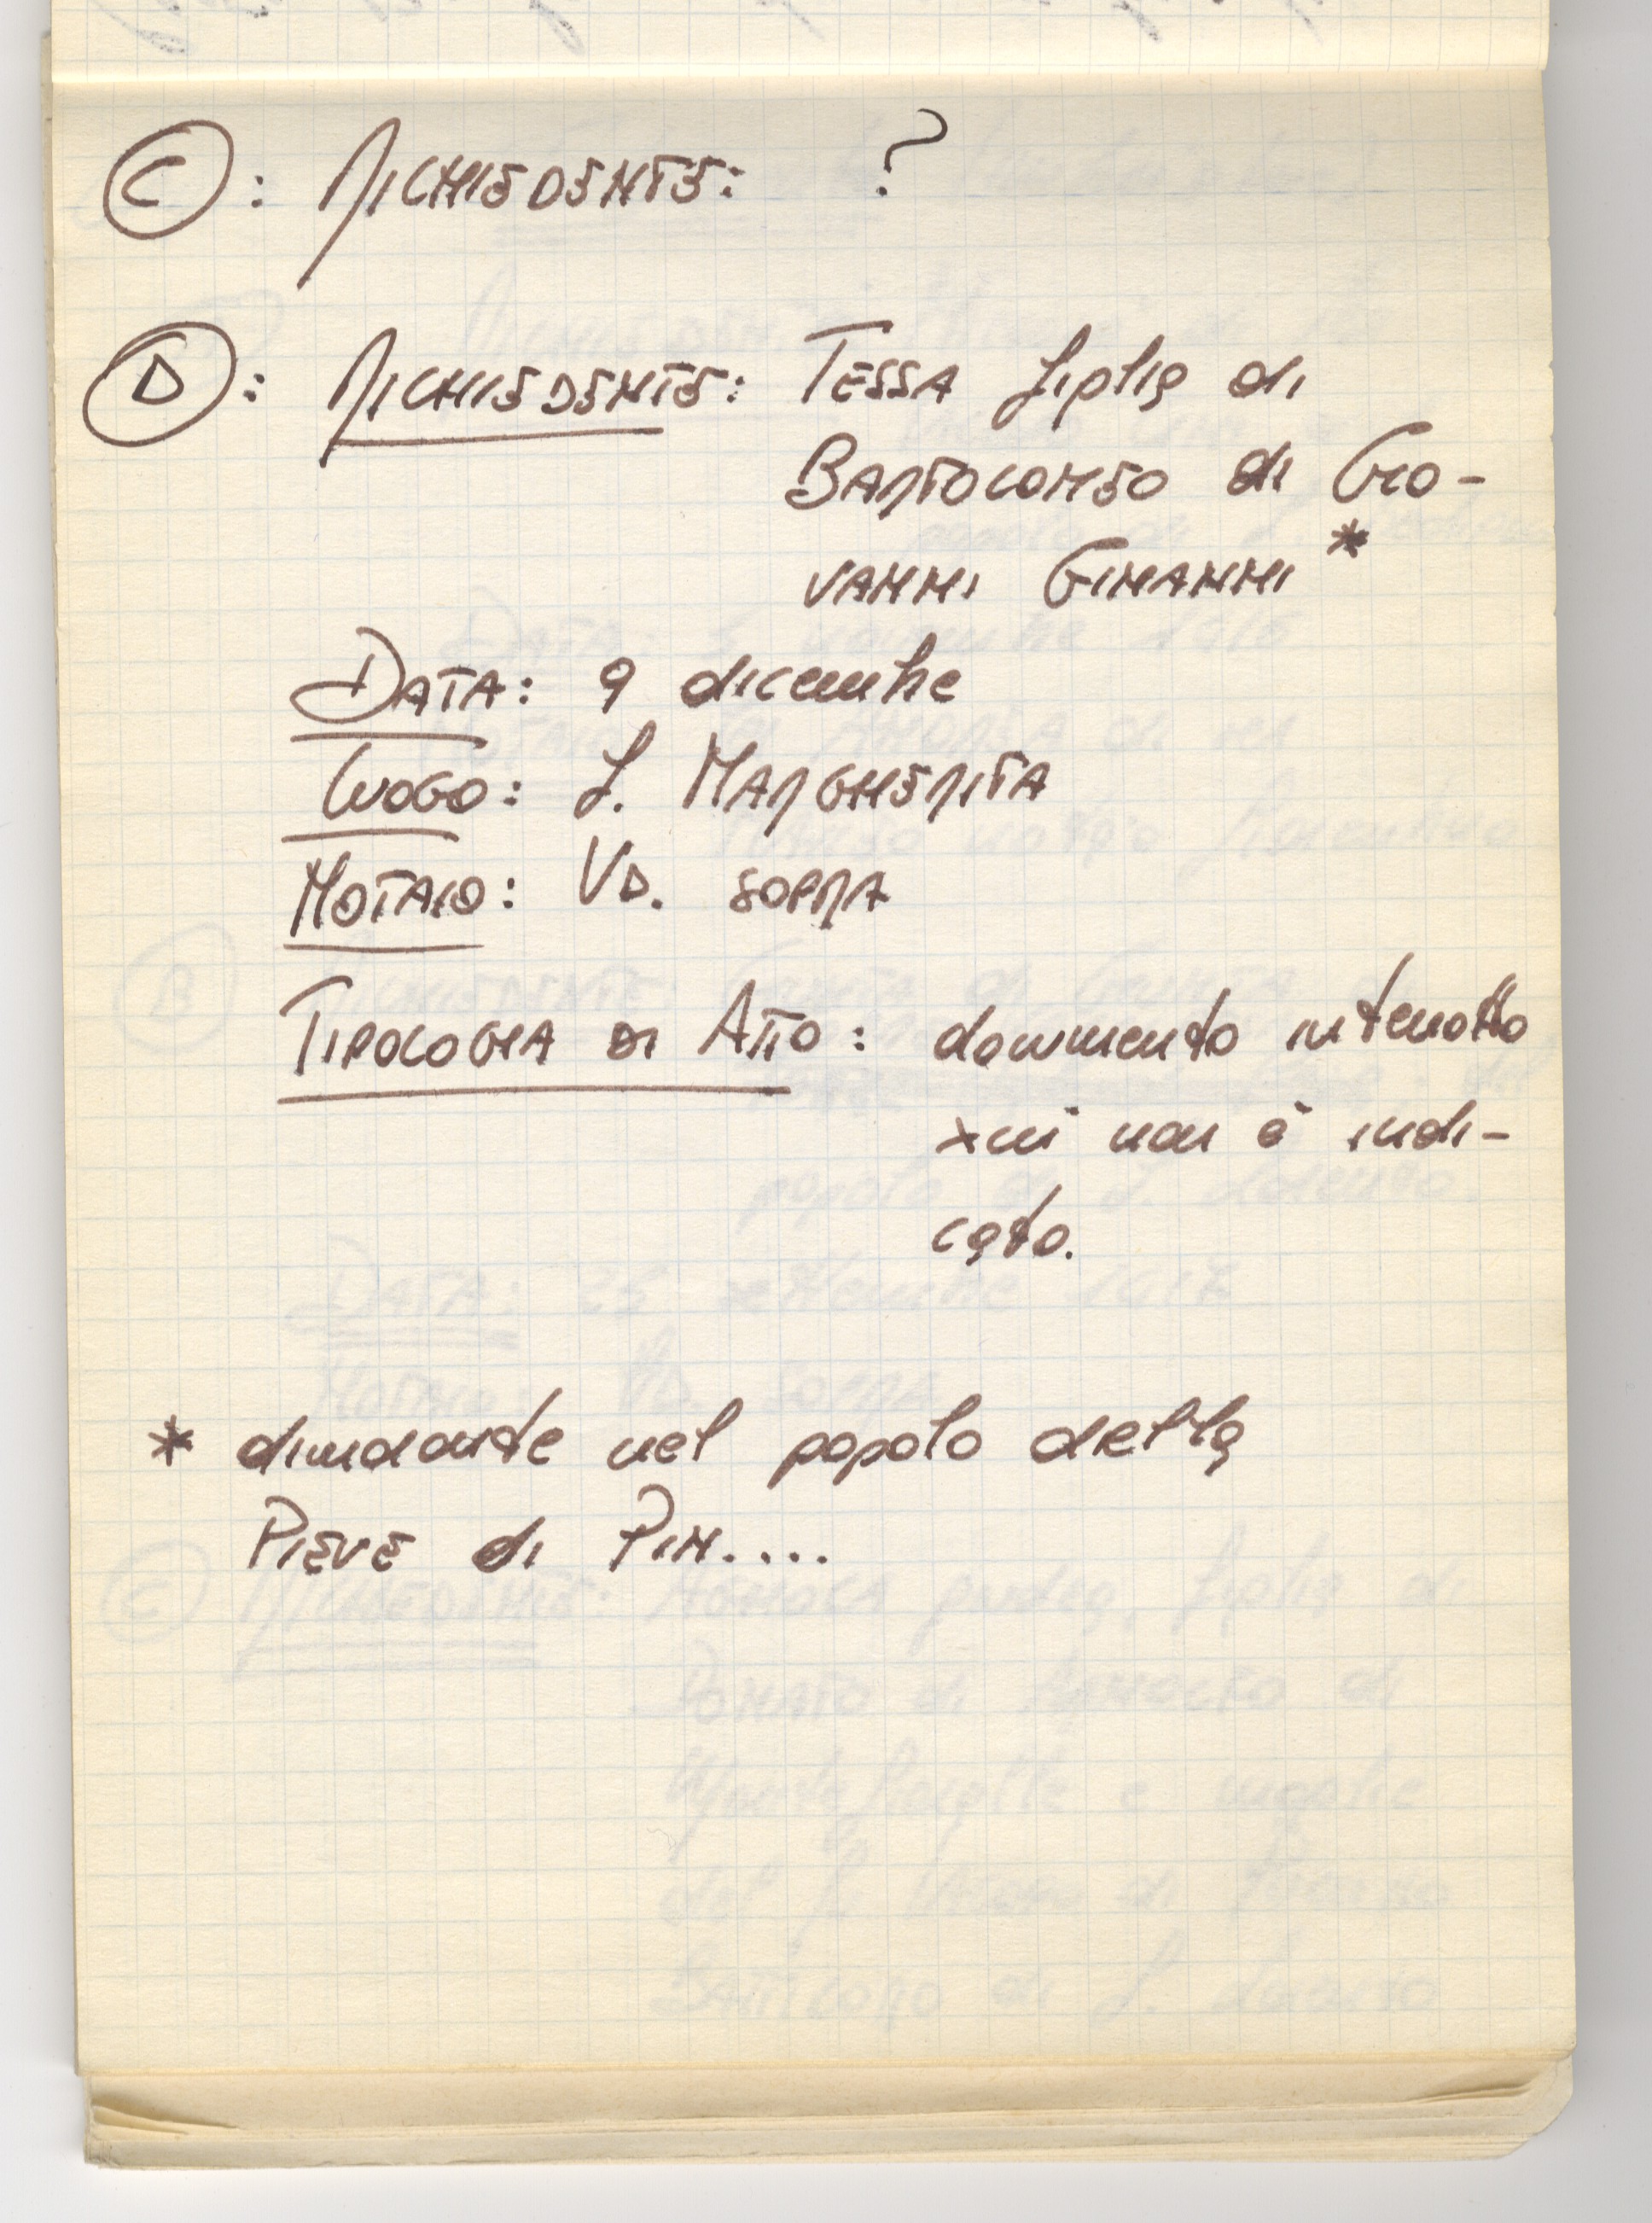 C: RICHIEDENTE: ?
D: RICHIEDENTE: TESSA figlia di
BARTOLOMEO di GIO-
VANNI GINANNI *
DATA: 9 dicembre
LUOGO: S. MARGHERITA
NOTAIO: VD. SOPRA
TIPOLOGIA DI ATTO: documento interrotto
x cui non è indi-
cato.
* dimorante nel popolo della
PIEVE di PIN....